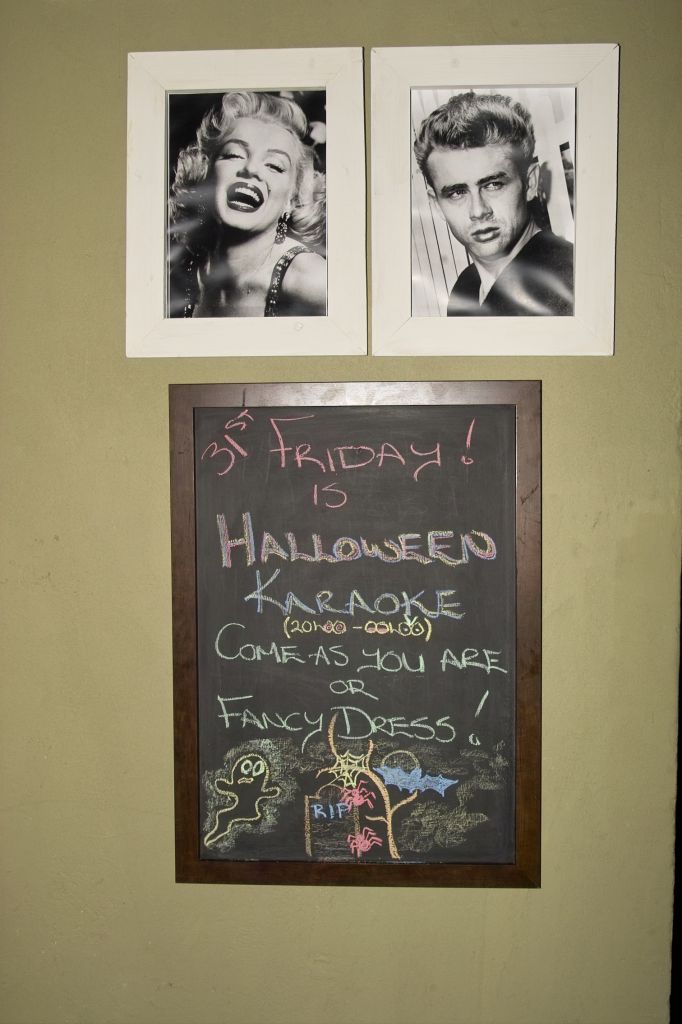 31ST FRIDAY!
IS
HALLOWEEN
KARAOKE
(20h00 - 00h00)
COME AS YOU ARE
OR
FANCY DRESS!
RIP